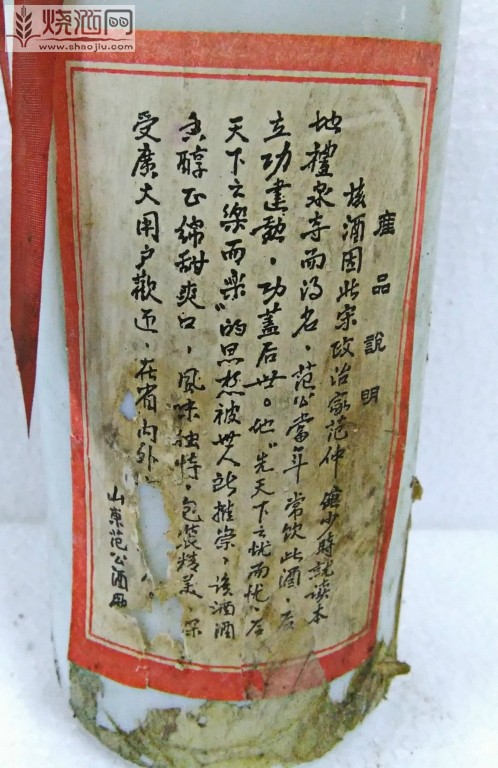 烧酒网
www.shaojiu.com
産品說明
该酒因此宋政治家范仲淹少時就读本
地禮泉寺而得名，范公當年常饮此酒，后
立功建勲，功蓋后世。他“先天下之忧而忧，后
天下之樂而乐”的思想被世人所推崇，该酒酒
香醇正绵甜爽口，風味独特，包装精美，深
受廣大用户歡迎，在省内外
山東范公酒厂